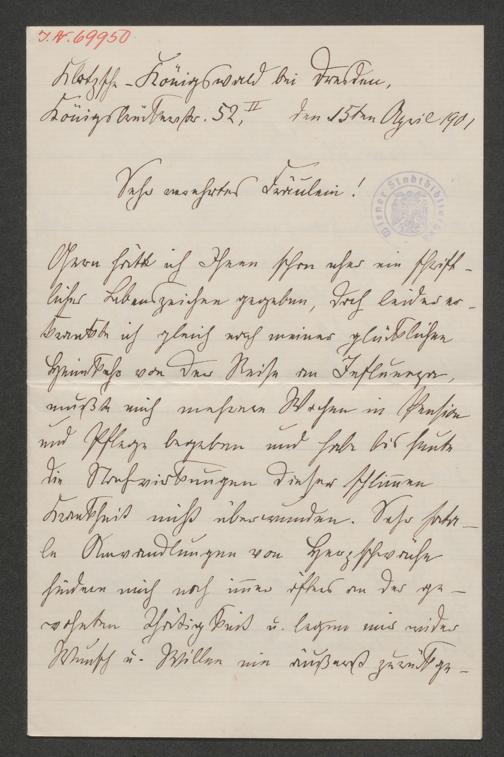 J.N. 69950
Klotzsche-Königswald bei Dresden,
Königsbrückerstr. 52, II den 15ten April 1901
Sehr verehrtes Fräulein!
Wiener Stadtbibliothek
Gern hätte ich Ihnen schon eher ein schrift-
liches Lebenszeichen gegeben, doch leider er-
krankte ich gleich nach meiner glücklichen
Heimkehr von der Reise an Influenza,
mußte mich mehrere Wochen in Pension
und Pflege begeben und habe bis heute
die Nachwirkungen dieser schlimmen
Krankheit nicht überwunden. Sehr fata-
le Anwandlungen von Herzschwäche
hindern mich noch immer öfters an der ge-
wohnten Thätigkeit u. legen mir wider
Wunsch u. Willen ein äußerst zurückge-